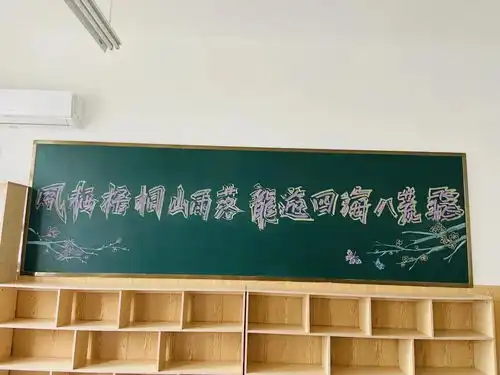 風栖梧桐山雨落龍遊四海八荒